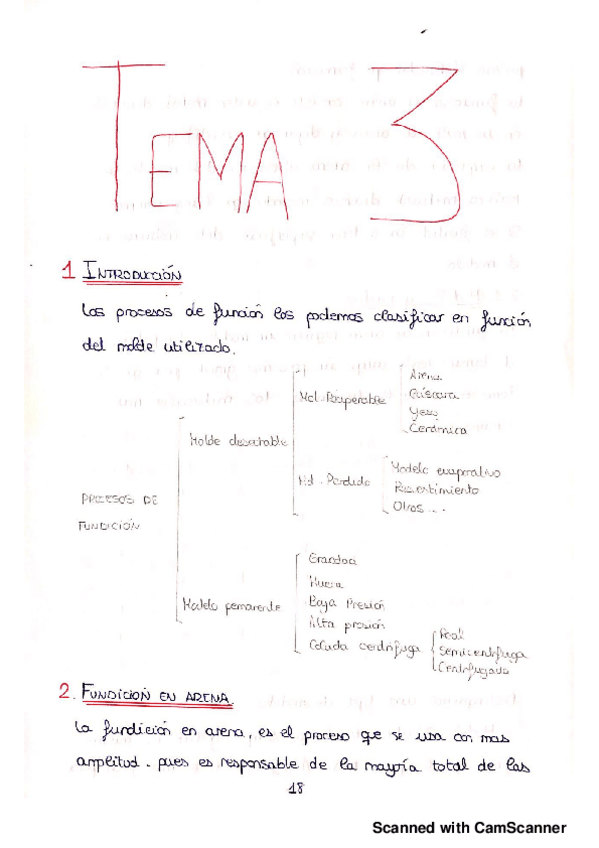 TEMA 3
1 INTRODUCCIÓN
Los procesos de función los podemos clasificar en función
del molde utilizado.
PROCESOS DE
FUNDICIÓN
Molde desechable
Mol. Recuperable
Arena
Cáscara
Yeso
Cerámica
Md. Perdido
Modelo evaporativo
Revestimiento
Otros ...
Molde permanente
Hueca
Baja Presión
Alta presión
Colada centrífuga
Real
Semicentrifuga
Centrifugado
2. FUNDICION EN ARENA.
La fundición en arena, es el proceso que se usa con mas
amplitud. pues es responsable de la mayoría total de las
18
Scanned with CamScanner